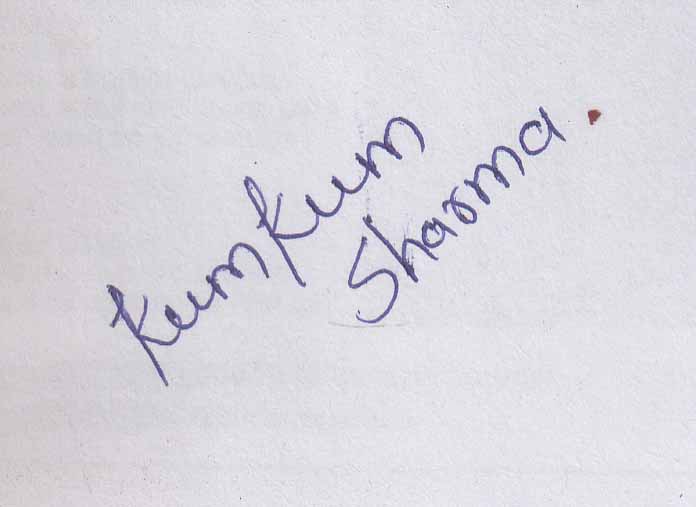 KumKum
Sharma.